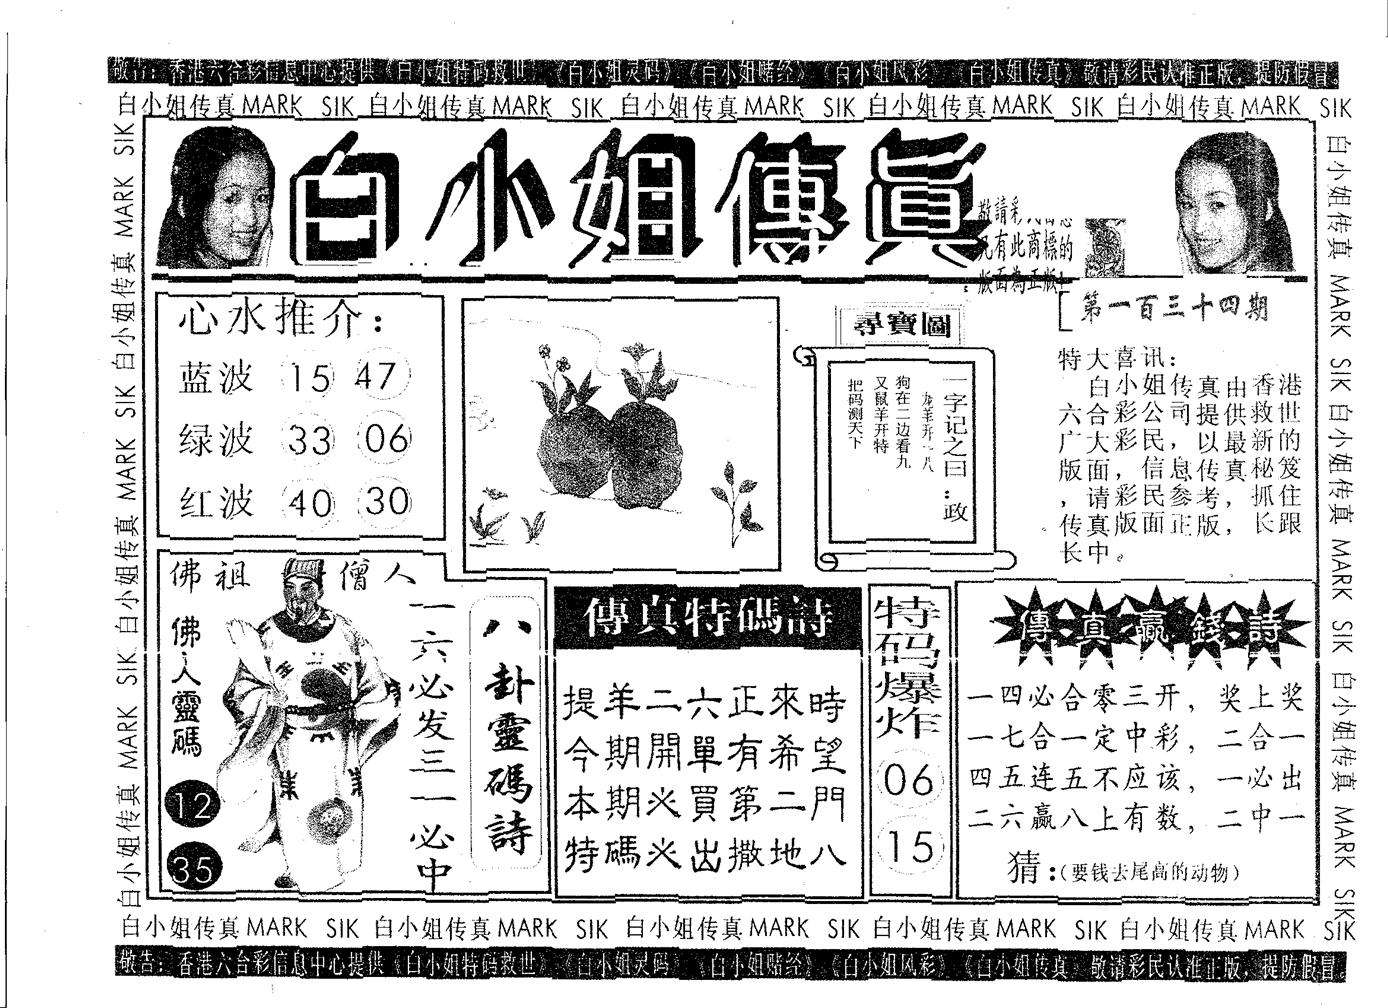 敬告：香港六合彩信息中心提供《白小姐特码救世》《白小姐灵码》《白小姐赌经》《白小姐风彩》《白小姐传真》敬请彩民认准正版，提防假冒。
白小姐传真 MARK SIK 白小姐传真 MARK SIK 白小姐传真 MARK SIK 白小姐传真 MARK SIK 白小姐传真 MARK SIK
白小姐傳真
敬請彩
凡有此商標的
版面為正版
第一百三十四期
心水推介：
蓝波 15 47
绿波 33 06
红波 40 30
尋寶圖
一字记之曰：政
龙羊开一八
狗在二边看九
又鼠羊开特
把码测天下
特大喜讯：
白小姐传真由香港
六合彩公司提供救世
广大彩民，以最新的
版面，信息传真秘笈
，请彩民参考，抓住
传真版面正版，长跟
长中。
佛祖 僧人
佛人靈碼
12
35
一六必发三一必中
八卦靈碼詩
傳真特碼詩
提羊二六正來時
今期開單有希望
本期必買第二門
特碼必出撒地八
特码爆炸
06
15
傳真贏錢詩
一四必合零三开，奖上奖
一七合一定中彩，二合一
四五连五不应该，一必出
二六赢八上有数，二中一
猜：(要钱去尾高的动物)
白小姐传真 MARK SIK 白小姐传真 MARK SIK 白小姐传真 MARK SIK
白小姐传真 MARK SIK 白小姐传真 MARK SIK 白小姐传真 MARK SIK
白小姐传真 MARK SIK 白小姐传真 MARK SIK 白小姐传真 MARK SIK 白小姐传真 MARK SIK 白小姐传真 MARK SIK
敬告：香港六合彩信息中心提供《白小姐特码救世》《白小姐灵码》《白小姐赌经》《白小姐风彩》《白小姐传真》敬请彩民认准正版，提防假冒。